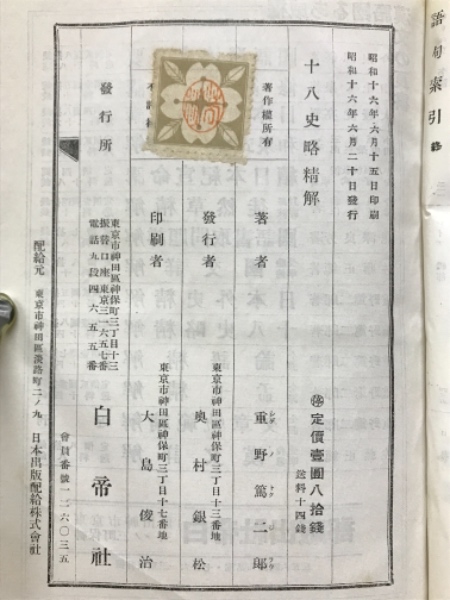 語句索引 終
昭和十六年六月十五日印刷
昭和十六年六月二十日發行
十八史略精解
㊕定價壹圓八拾錢
送料十四錢
著作權所有
著者 重野篤二郎
東京市神田區神保町三丁目十三番地
發行者 奥村銀松
東京市神田區神保町三丁目十七番地
印刷者 大島俊治
發行所
東京市神田區神保町三丁目十三
振替口座東京三一六五七番
電話九段四六五五番
白帝社
會員番號一二六〇三五
配給元 東京市神田區淡路町二ノ九 日本出版配給株式會社